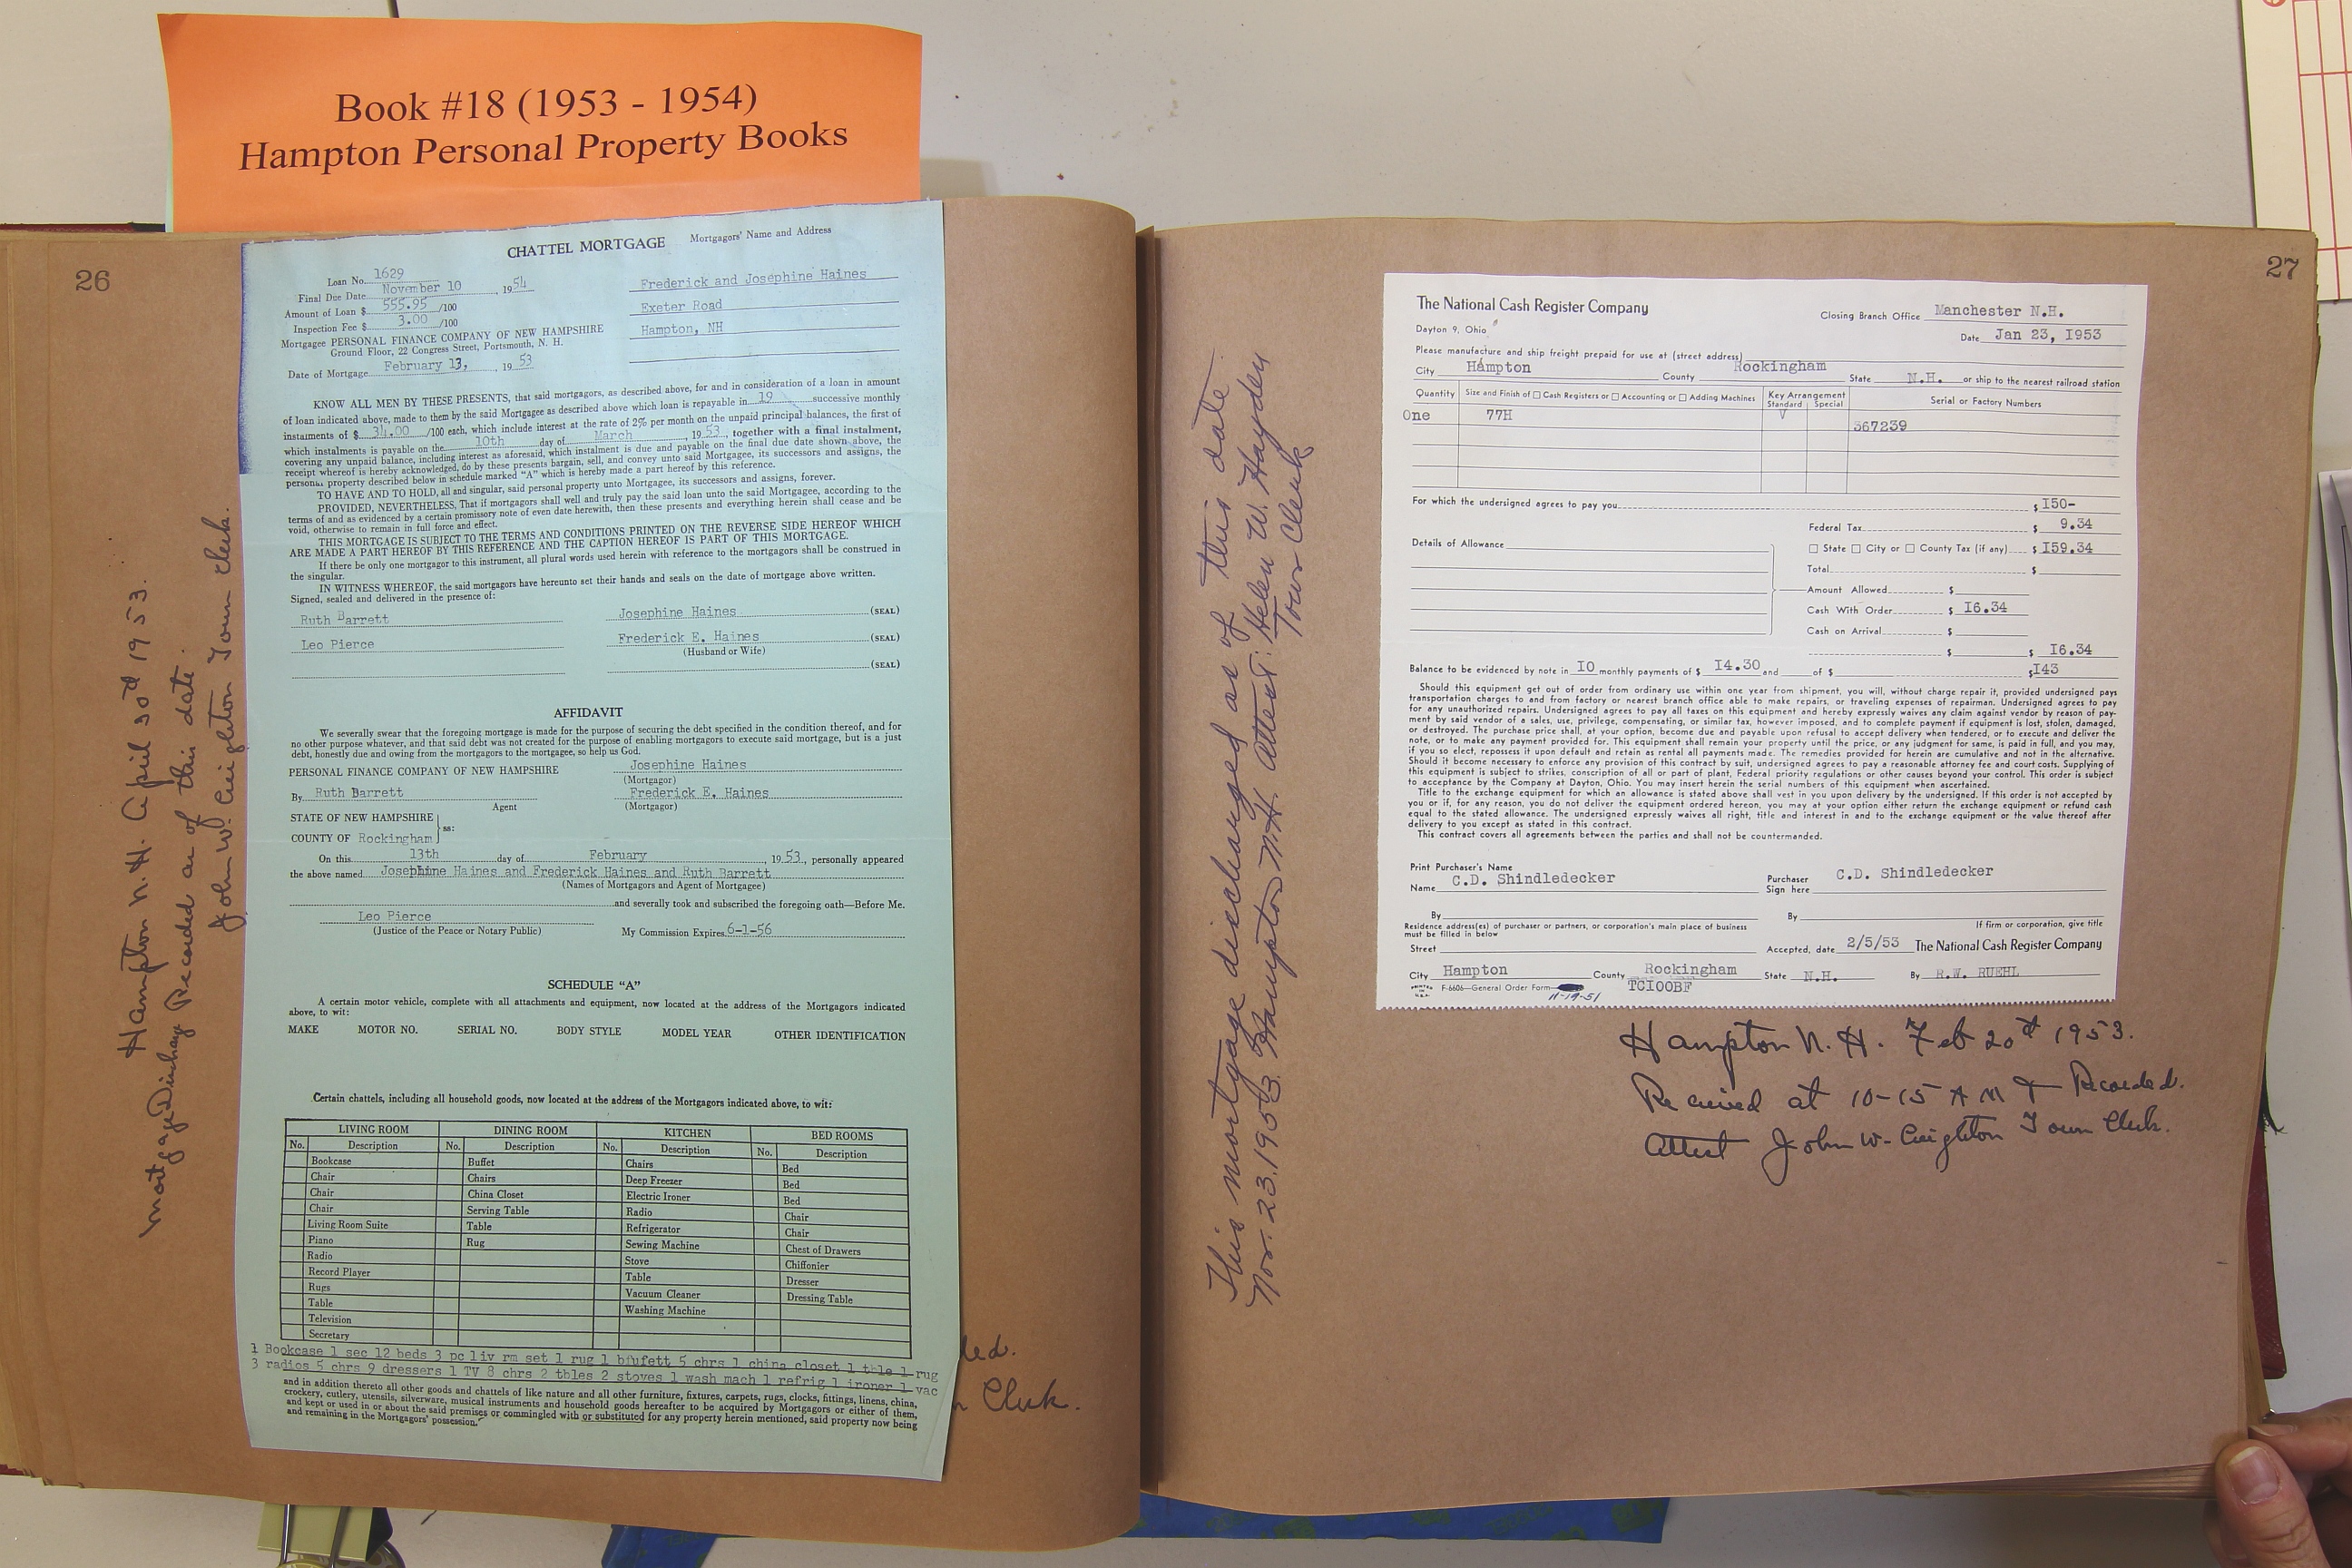 Book #18 (1953 - 1954)
Hampton Personal Property Books
26
CHATTEL MORTGAGE
Mortgagors' Name and Address
Loan No. 1629
Final Due Date November 10, 1954
Amount of Loan $ 555.95 /100
Inspection Fee $ 3.00 /100
Mortgagee PERSONAL FINANCE COMPANY OF NEW HAMPSHIRE
Ground Floor, 22 Congress Street, Portsmouth, N. H.
Date of Mortgage February 13, 1953
Frederick and Josephine Haines
Exeter Road
Hampton, NH
KNOW ALL MEN BY THESE PRESENTS, that said mortgagors, as described above, for and in consideration of a loan in amount
of loan indicated above, made to them by the said Mortgagee as described above which loan is repayable in 19 successive monthly
instalments of $ 34.00 /100 each, which include interest at the rate of 2% per month on the unpaid principal balances, the first of
which instalments is payable on the 10th day of March, 1953, together with a final instalment,
covering any unpaid balance, including interest as aforesaid, which instalment is due and payable on the final due date shown above, the
receipt whereof is hereby acknowledged, do by these presents bargain, sell, and convey unto said Mortgagee, its successors and assigns, the
personal property described below in schedule marked "A" which is hereby made a part hereof by this reference.
TO HAVE AND TO HOLD, all and singular, said personal property unto Mortgagee, its successors and assigns, forever.
PROVIDED, NEVERTHELESS, That if mortgagors shall well and truly pay the said loan unto the said Mortgagee, according to the
terms of and as evidenced by a certain promissory note of even date herewith, then these presents and everything herein shall cease and be
void, otherwise to remain in full force and effect.
THIS MORTGAGE IS SUBJECT TO THE TERMS AND CONDITIONS PRINTED ON THE REVERSE SIDE HEREOF WHICH
ARE MADE A PART HEREOF BY THIS REFERENCE AND THE CAPTION HEREOF IS PART OF THIS MORTGAGE.
If there be only one mortgagor to this instrument, all plural words used herein with reference to the mortgagors shall be construed in
the singular.
IN WITNESS WHEREOF, the said mortgagors have hereunto set their hands and seals on the date of mortgage above written.
Signed, sealed and delivered in the presence of:
Ruth Barrett
Josephine Haines (SEAL)
Leo Pierce
Frederick E. Haines (SEAL)
(Husband or Wife)
(SEAL)
AFFIDAVIT
We severally swear that the foregoing mortgage is made for the purpose of securing the debt specified in the condition thereof, and for
no other purpose whatever, and that said debt was not created for the purpose of enabling mortgagors to execute said mortgage, but is a just
debt, honestly due and owing from the mortgagors to the mortgagee, so help us God.
PERSONAL FINANCE COMPANY OF NEW HAMPSHIRE
Josephine Haines
(Mortgagor)
By Ruth Barrett
Agent
Frederick E. Haines
(Mortgagor)
STATE OF NEW HAMPSHIRE
ss:
COUNTY OF Rockingham
On this 13th day of February, 1953, personally appeared
the above named Josephine Haines and Frederick Haines and Ruth Barrett
(Names of Mortgagors and Agent of Mortgagee)
and severally took and subscribed the foregoing oath—Before Me.
Leo Pierce
(Justice of the Peace or Notary Public)
My Commission Expires 6-1-56
SCHEDULE "A"
A certain motor vehicle, complete with all attachments and equipment, now located at the address of the Mortgagors indicated
above, to wit:
MAKE MOTOR NO. SERIAL NO. BODY STYLE MODEL YEAR OTHER IDENTIFICATION
Certain chattels, including all household goods, now located at the address of the Mortgagors indicated above, to wit:
LIVING ROOM DINING ROOM KITCHEN BED ROOMS
No. Description No. Description No. Description No. Description
Bookcase Buffet Chairs Bed
Chair Chairs Deep Freezer Bed
Chair China Closet Electric Ironer Bed
Chair Serving Table Radio Chair
Living Room Suite Table Refrigerator Chair
Piano Rug Sewing Machine Chest of Drawers
Radio Stove Chiffonier
Record Player Table Dresser
Rugs Vacuum Cleaner Dressing Table
Table Washing Machine
Television
Secretary
1 Bookcase 1 sec 12 beds 3 pc liv rm set 1 rug 1 bfufett 5 chrs 1 china closet 1 tble 1 rug
3 radios 5 chrs 9 dressers 1 TV 8 chrs 2 tbles 2 stoves 1 wash mach 1 refrig 1 ironer 1 vac
and in addition thereto all other goods and chattels of like nature and all other furniture, fixtures, carpets, rugs, clocks, fittings, linens, china,
crockery, cutlery, utensils, silverware, musical instruments and household goods hereafter to be acquired by Mortgagors or either of them,
and kept or used in or about the said premises or commingled with or substituted for any property herein mentioned, said property now being
and remaining in the Mortgagors' possession.
Clerk.
Hampton N.H. April 30th 1953.
Mortgage Discharge Recorded as of this date.
John W. Creighton Town Clerk.
27
This mortgage discharged as of this date
Nov. 23. 1953. Hampton N.H. Attest: Helen W. Hayden
Town Clerk
The National Cash Register Company
Dayton 9, Ohio
Closing Branch Office Manchester N.H.
Date Jan 23, 1953
Please manufacture and ship freight prepaid for use at (street address)
City Hampton County Rockingham State N.H. or ship to the nearest railroad station
Quantity Size and Finish of Cash Registers or Accounting or Adding Machines Key Arrangement Standard Special Serial or Factory Numbers
One 77H V
367239
For which the undersigned agrees to pay you $ I50-
Federal Tax $ 9.34
Details of Allowance
State City or County Tax (if any) $ I59.34
Total $
Amount Allowed $
Cash With Order $ I6.34
Cash on Arrival $
$ $ I6.34
Balance to be evidenced by note in I0 monthly payments of $ I4.30 and of $ $I43
Should this equipment get out of order from ordinary use within one year from shipment, you will, without charge repair it, provided undersigned pays
transportation charges to and from factory or nearest branch office able to make repairs, or traveling expenses of repairman. Undersigned agrees to pay
for any unauthorized repairs. Undersigned agrees to pay all taxes on this equipment and hereby expressly waives any claim against vendor by reason of pay-
ment by said vendor of a sales, use, privilege, compensating, or similar tax, however imposed, and to complete payment if equipment is lost, stolen, damaged,
or destroyed. The purchase price shall, at your option, become due and payable upon refusal to accept delivery when tendered, or to execute and deliver the
note, or to make any payment provided for. This equipment shall remain your property until the price, or any judgment for same, is paid in full, and you may,
if you so elect, repossess it upon default and retain as rental all payments made. The remedies provided for herein are cumulative and not in the alternative.
Should it become necessary to enforce any provision of this contract by suit, undersigned agrees to pay a reasonable attorney fee and court costs. Supplying of
this equipment is subject to strikes, conscription of all or part of plant, Federal priority regulations or other causes beyond your control. This order is subject
to acceptance by the Company at Dayton, Ohio. You may insert herein the serial numbers of this equipment when ascertained.
Title to the exchange equipment for which an allowance is stated above shall vest in you upon delivery by the undersigned. If this order is not accepted by
you or if, for any reason, you do not deliver the equipment ordered hereon, you may at your option either return the exchange equipment or refund cash
equal to the stated allowance. The undersigned expressly waives all right, title and interest in and to the exchange equipment or the value thereof after
delivery to you except as stated in this contract.
This contract covers all agreements between the parties and shall not be countermanded.
Print Purchaser's Name
Name C.D. Shindledecker
Purchaser
Sign here C.D. Shindledecker
By
By
If firm or corporation, give title
Residence address(es) of purchaser or partners, or corporation's main place of business
must be filled in below
Street
Accepted, date 2/5/53 The National Cash Register Company
City Hampton County Rockingham State N.H. By R.W. RUEHL
PRINTED IN U.S.A. F-6606—General Order Form TCI00BF
11-19-51
Hampton N.H. Feb 20th 1953.
Received at 10-15 A M & Recorded.
Attest John W. Creighton Town Clerk.